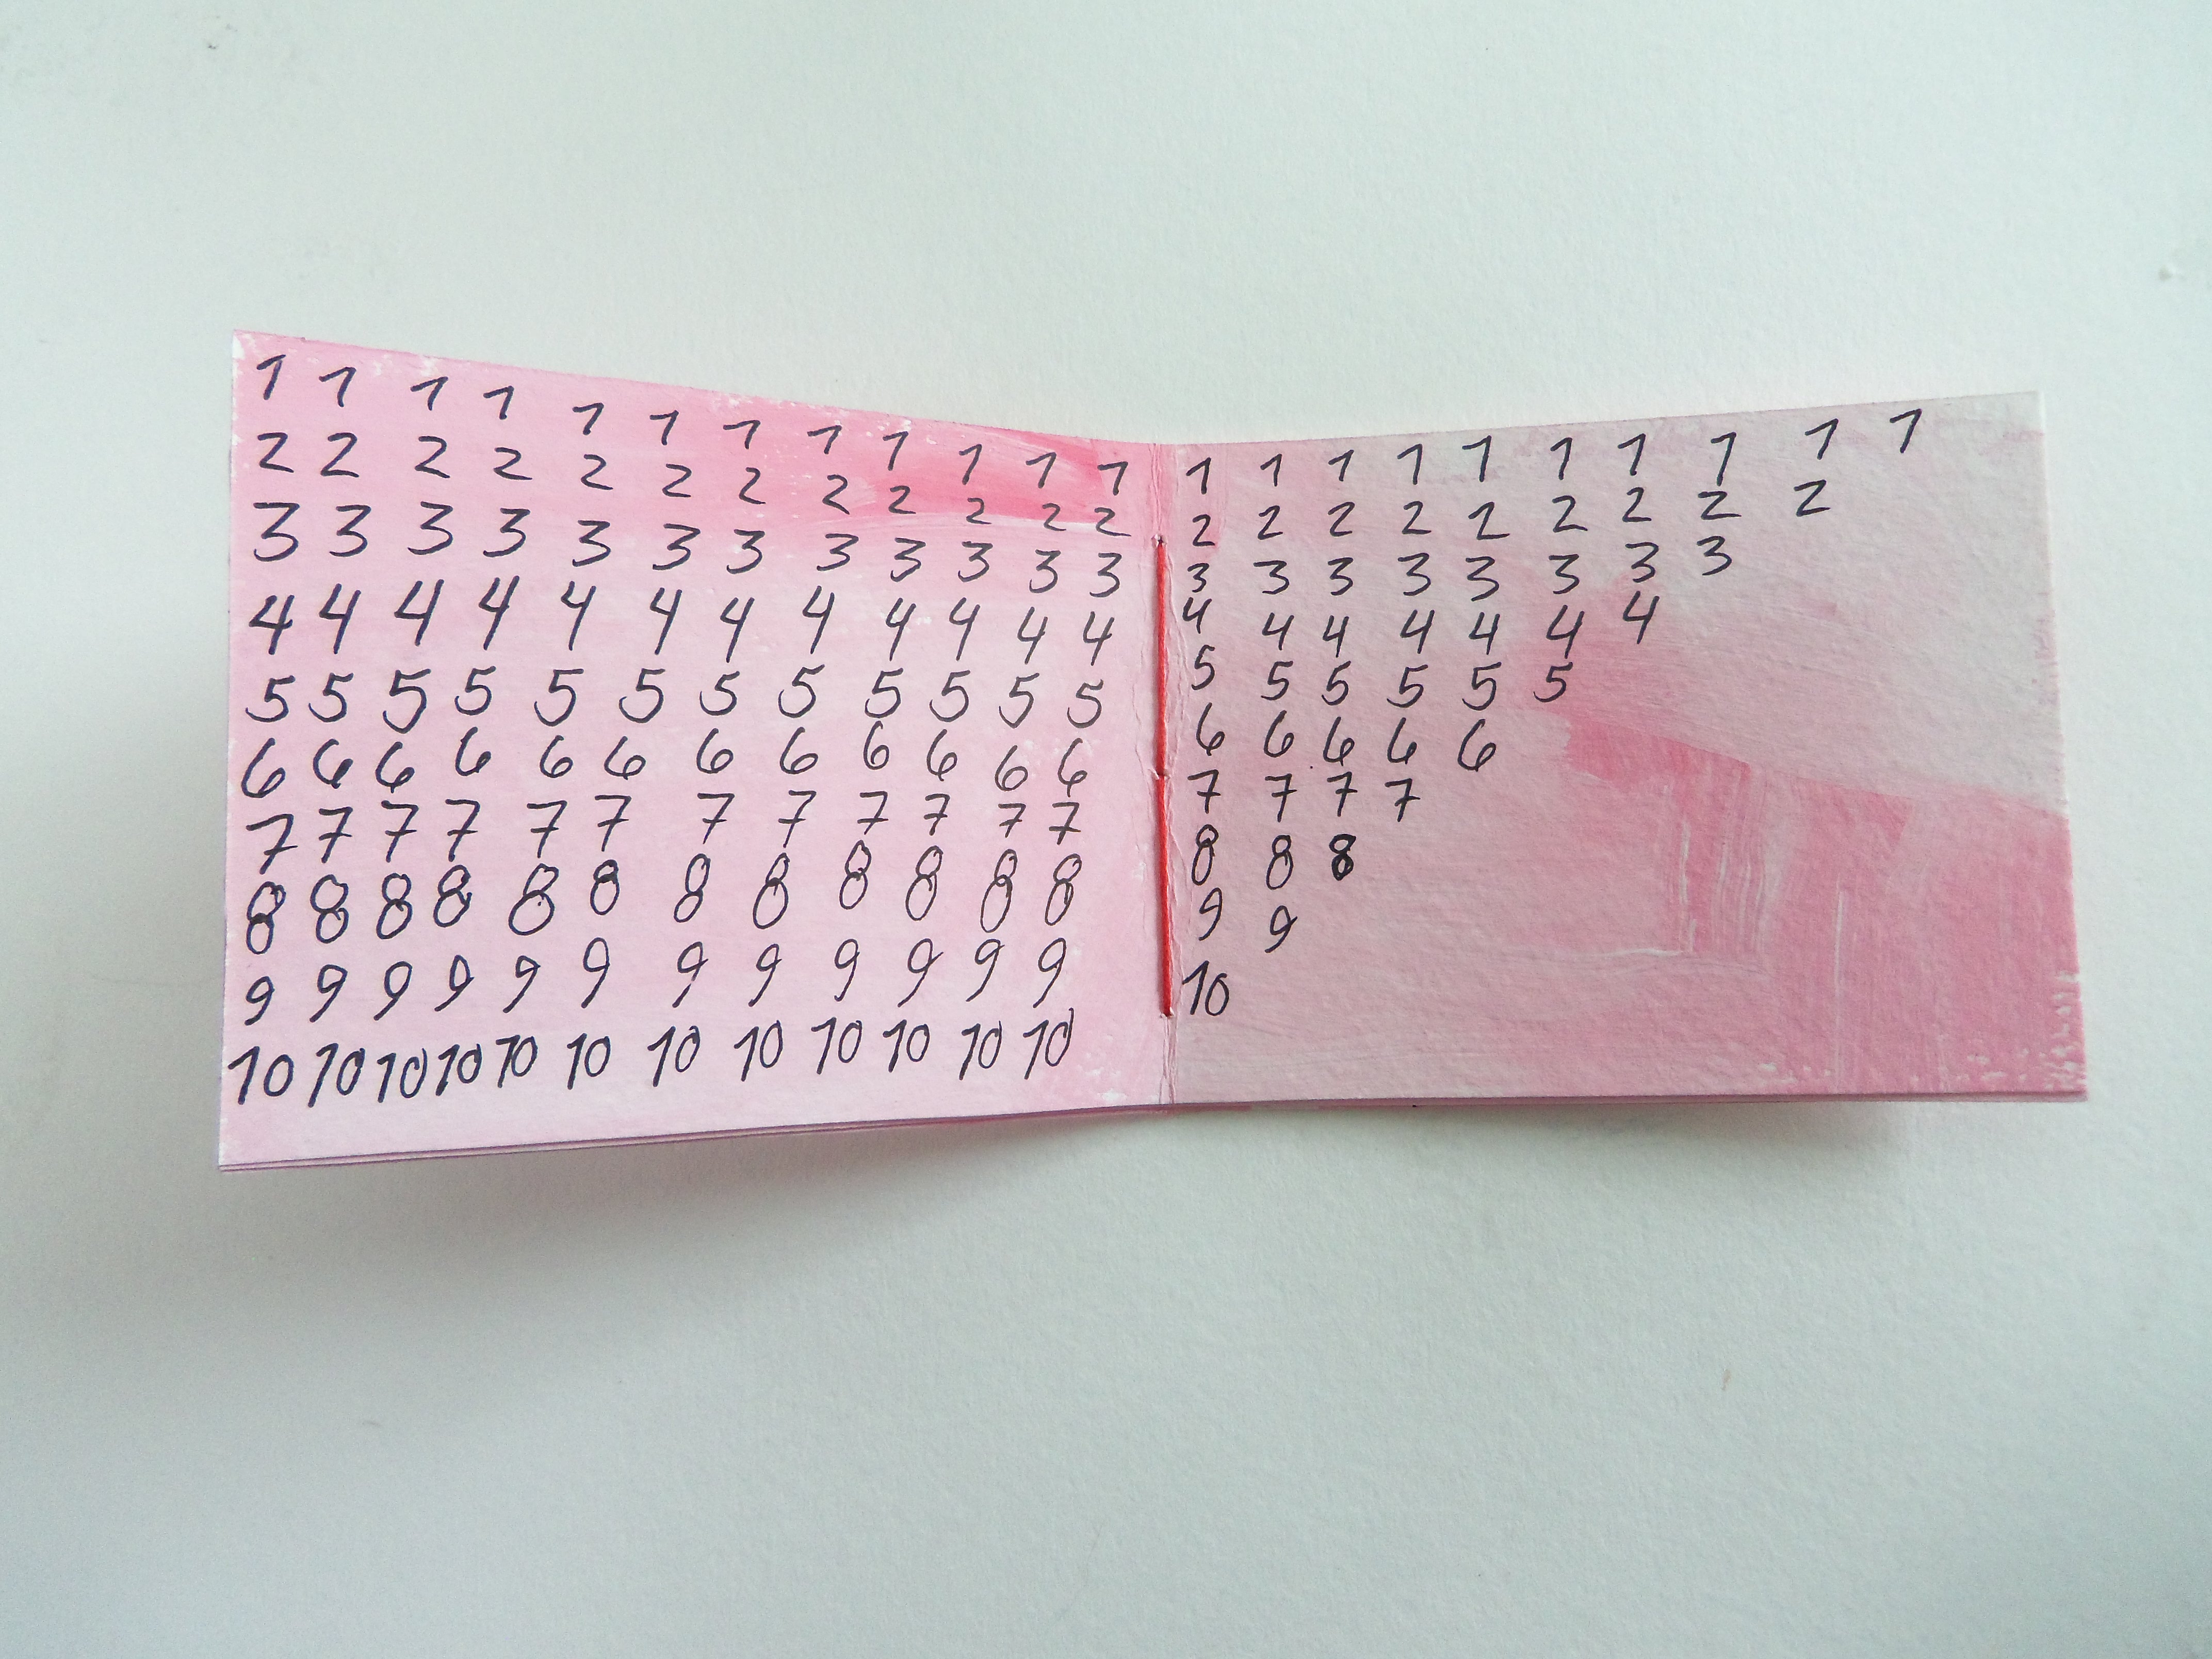 1 1 1 1 1 1 1 1 1 1 1 1
2 2 2 2 2 2 2 2 2 2 2 2
3 3 3 3 3 3 3 3 3 3 3 3
4 4 4 4 4 4 4 4 4 4 4 4
5 5 5 5 5 5 5 5 5 5 5 5
6 6 6 6 6 6 6 6 6 6 6 6
7 7 7 7 7 7 7 7 7 7 7 7
8 8 8 8 8 8 8 8 8 8 8 8
9 9 9 9 9 9 9 9 9 9 9 9
10 10 10 10 10 10 10 10 10 10 10 10
1 1 1 1 1 1 1 1 1 1
2 2 2 2 2 2 2 2 2
3 3 3 3 3 3 3 3
4 4 4 4 4 4 4
5 5 5 5 5 5
6 6 6 6 6
7 7 7 7
8 8 8
9 9
10